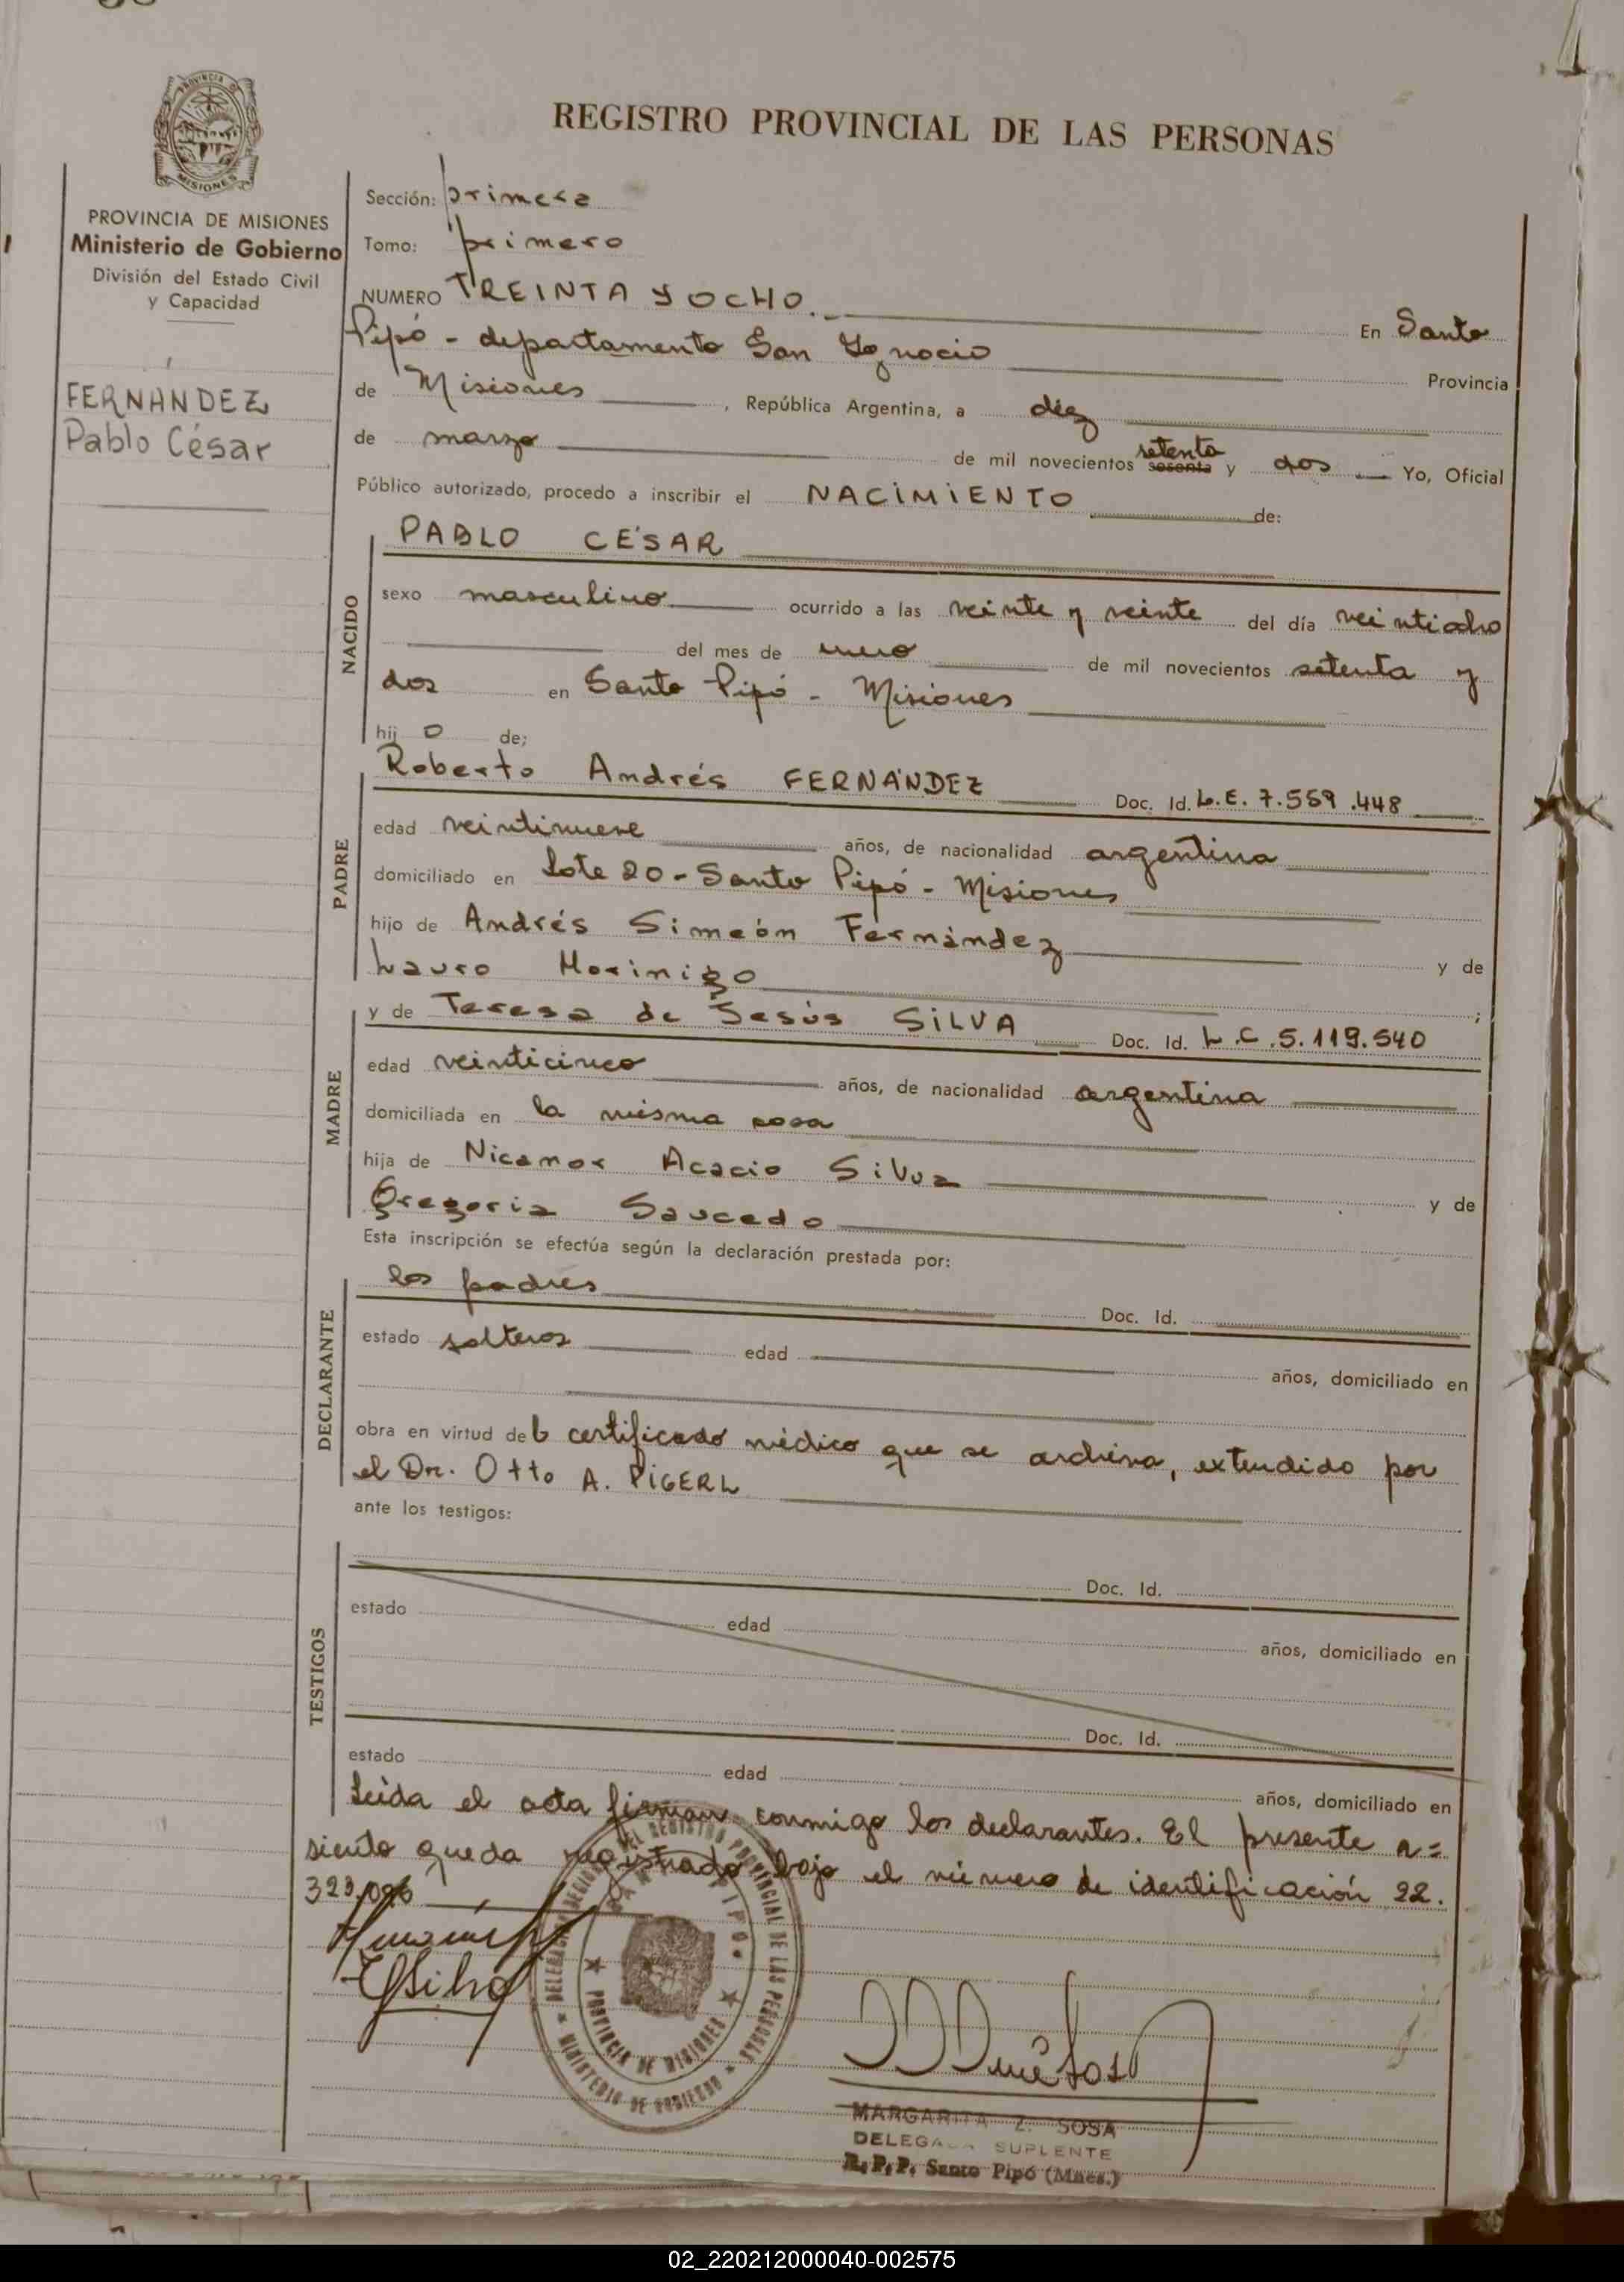 REGISTRO PROVINCIAL DE LAS PERSONAS
PROVINCIA
MISIONES
PROVINCIA DE MISIONES
Ministerio de Gobierno
División del Estado Civil
y Capacidad
FERNANDEZ
Pablo César
Sección: primera
Tomo: primero
NUMERO TREINTA Y OCHO. En Santo
Pipó - departamento San Ignacio Provincia
de Misiones, República Argentina, a diez
de marzo de mil novecientos setenta sesenta y dos Yo, Oficial
Público autorizado, procedo a inscribir el NACIMIENTO de:
PABLO CÉSAR
NACIDO
sexo masculino ocurrido a las veinte y veinte del día veintiocho
del mes de enero de mil novecientos setenta y
dos en Santo Pipó - Misiones
hij o de;
Roberto Andrés FERNÁNDEZ Doc. Id. L.E. 7.559.448
PADRE
edad veintinueve años, de nacionalidad argentina
domiciliado en Lote 20 - Santo Pipó - Misiones
hijo de Andrés Simeón Fernández y de
Morinigo
y de Teresa de Jesús SILVA Doc. Id. L.C. 5.119.540
MADRE
edad veinticinco años, de nacionalidad argentina
domiciliada en la misma casa
hija de Nicanor Acacio Silva y de
Gregoria Saucedo
Esta inscripción se efectúa según la declaración prestada por:
los padres Doc. Id.
DECLARANTE
estado solteros edad años, domiciliado en
obra en virtud del certificado médico que se archiva, extendido por
el Dr. Otto A. PIGERL
ante los testigos:
Doc. Id.
TESTIGOS
estado edad años, domiciliado en
Doc. Id.
estado edad años, domiciliado en
Leída el acta firman conmigo los declarantes. El presente a=
siento queda registrado bajo el número de identificación 22.
MINISTERIO DE GOBIERNO
PROVINCIA DE MISIONES
DEL REGISTRO PROVINCIAL DE LAS PERSONAS
MARGARITA Z. SOSA
DELEGADA SUPLENTE
R.P.P. Santo Pipó (Mnes.)
02_220212000040-002575